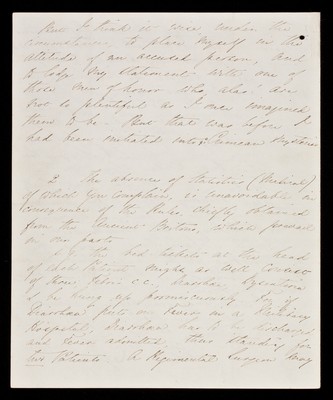 But I think it wise under the
circumstances to place myself in the
attitude of an accused person, and
to lodge my statement with one of
those men of honor who, alas! are
not so plentiful as I once imagined
them to be. But that was before I
had been initiated into Crimean Mysteries
2 The absence of Statistics (Medical)
of which you complain, is unavoidable in
consequence of the Rules, chiefly obtained
from the Ancient Britons, which prevail
in our parts
e.g. the bed tickets at the head
of each Patient might as well consist
of
to be hung up promiscuously for if
puts on in a Scutari
Hospital, has to be discharged
and admitted, thus standing for
two Patients. A Regimental Surgeon may